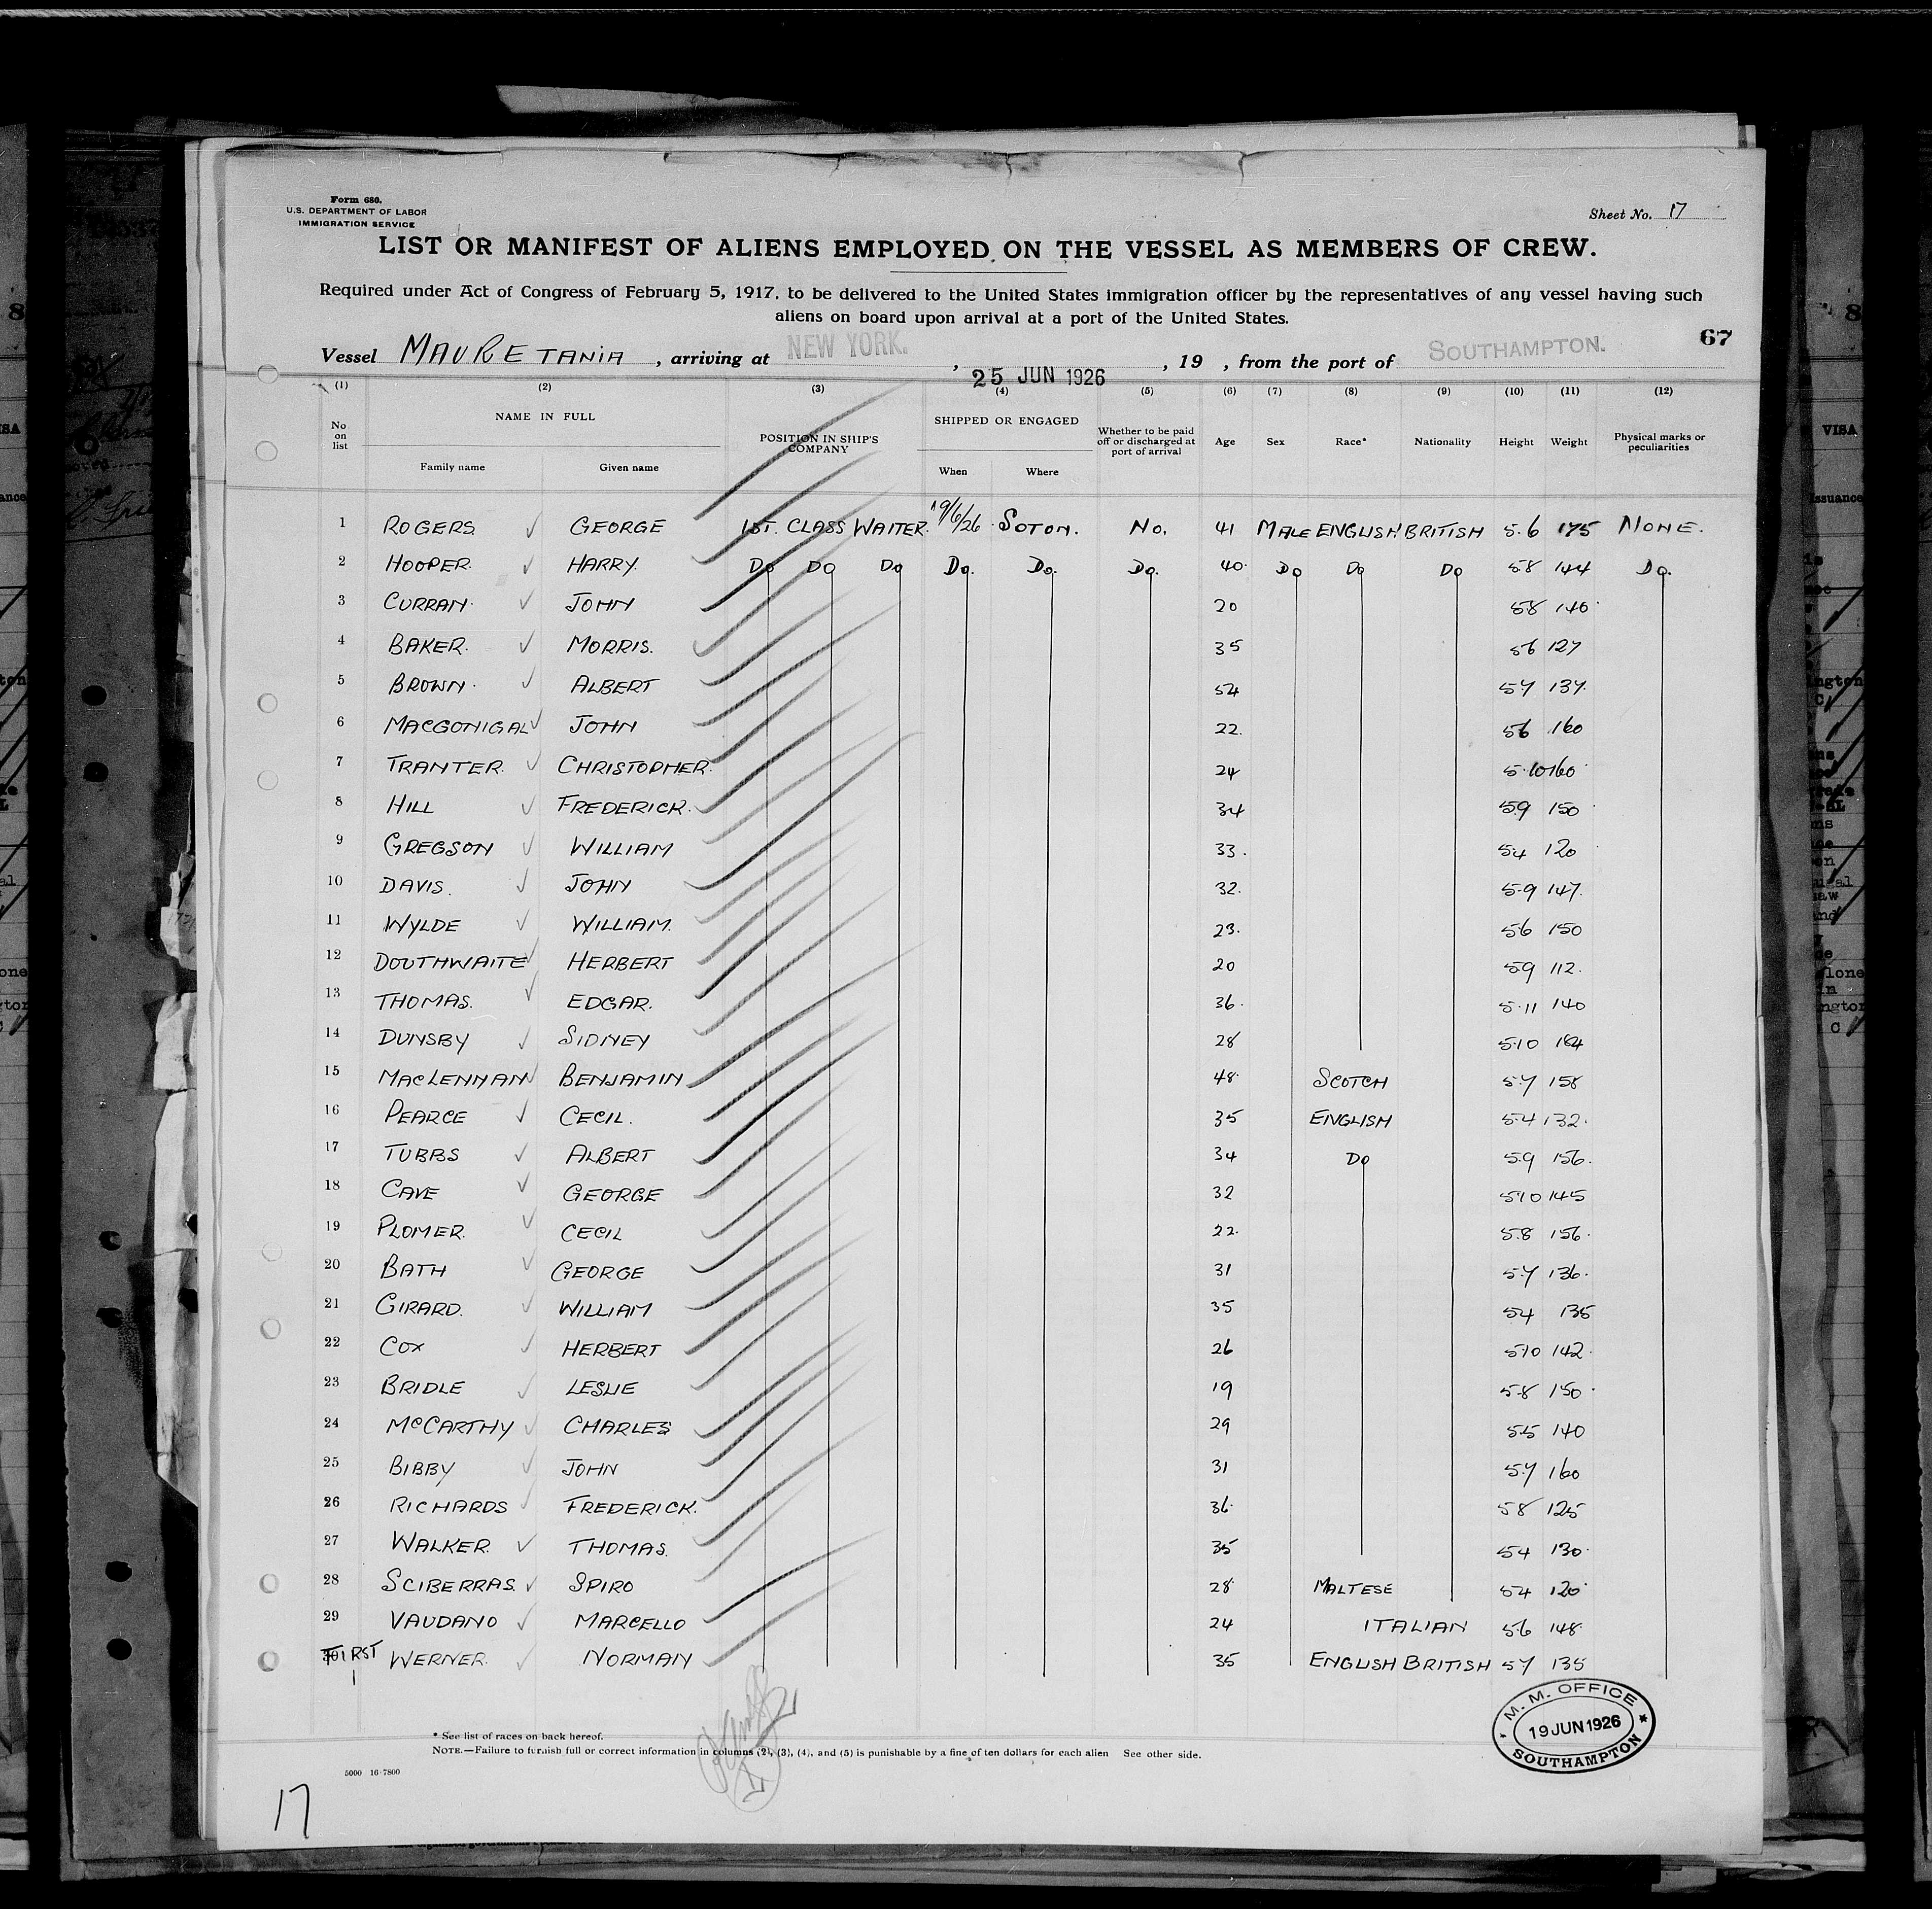 Form 680.
U.S. DEPARTMENT OF LABOR
IMMIGRATION SERVICE
Sheet No. 17
LIST OR MANIFEST OF ALIENS EMPLOYED ON THE VESSEL AS MEMBERS OF CREW.
Required under Act of Congress of February 5, 1917, to be delivered to the United States immigration officer by the representatives of any vessel having such
aliens on board upon arrival at a port of the United States.
67
Vessel MAURETANIA, arriving at NEW YORK. , 25 JUN 1926 , 19 , from the port of SOUTHAMPTON.
(1) (2) (3) (4) (5) (6) (7) (8) (9) (10) (11) (12)
No on list NAME IN FULL Family name Given name POSITION IN SHIP'S COMPANY SHIPPED OR ENGAGED When Where Whether to be paid off or discharged at port of arrival Age Sex Race* Nationality Height Weight Physical marks or peculiarities
1 ROGERS. ✓ GEORGE 1ST. CLASS WAITER. 19/6/26 SOTON. No. 41 MALE ENGLISH BRITISH 5.6 175 NONE.
2 HOOPER. ✓ HARRY. Do Do Do Do. Do. Do. 40. Do Do Do 5.8 144 Do.
3 CURRAN. ✓ JOHN 20 5.8 140.
4 BAKER. ✓ MORRIS. 35 5.6 127
5 BROWN. ✓ ALBERT 54 5.7 137.
6 MACGONIGAL ✓ JOHN 22. 5.6 160
7 TRANTER. ✓ CHRISTOPHER. 24 5.10 160
8 HILL ✓ FREDERICK. 34 5.9 150
9 GREGSON ✓ WILLIAM 33. 5.4 120
10 DAVIS. ✓ JOHN 32. 5.9 147.
11 WYLDE ✓ WILLIAM. 23. 5.6 150
12 DOUTHWAITE ✓ HERBERT 20 5.9 112.
13 THOMAS. ✓ EDGAR. 36. 5.11 140
14 DUNSBY ✓ SIDNEY 28 5.10 164
15 MACLENNAN ✓ BENJAMIN 48. SCOTCH 5.7 158
16 PEARCE ✓ CECIL. 35 ENGLISH 5.4 132.
17 TUBBS ✓ ALBERT 34 Do 5.9 156.
18 CAVE ✓ GEORGE 32 5.10 145
19 PLOMER. ✓ CECIL 22. 5.8 156.
20 BATH ✓ GEORGE 31 5.7 136.
21 GIRARD. ✓ WILLIAM 35 5.4 135
22 COX ✓ HERBERT 26 5.10 142.
23 BRIDLE ✓ LESLIE 19 5.8 150.
24 McCARTHY ✓ CHARLES 29 5.5 140
25 BIBBY ✓ JOHN 31 5.7 160
26 RICHARDS ✓ FREDERICK. 36. 5.8 125
27 WALKER. ✓ THOMAS. 35 5.4 130.
28 SCIBERRAS. ✓ SPIRO 28 MALTESE 5.4 120.
29 VAUDANO ✓ MARCELLO 24 ITALIAN 5.6 148.
30 FIRST 1 WERNER. ✓ NORMAN 35 ENGLISH BRITISH 5.7 135
* See list of races on back hereof.
NOTE.—Failure to furnish full or correct information in columns (2), (3), (4), and (5) is punishable by a fine of ten dollars for each alien See other side.
5000 16-7800
M. M. OFFICE
19 JUN 1926
SOUTHAMPTON
17